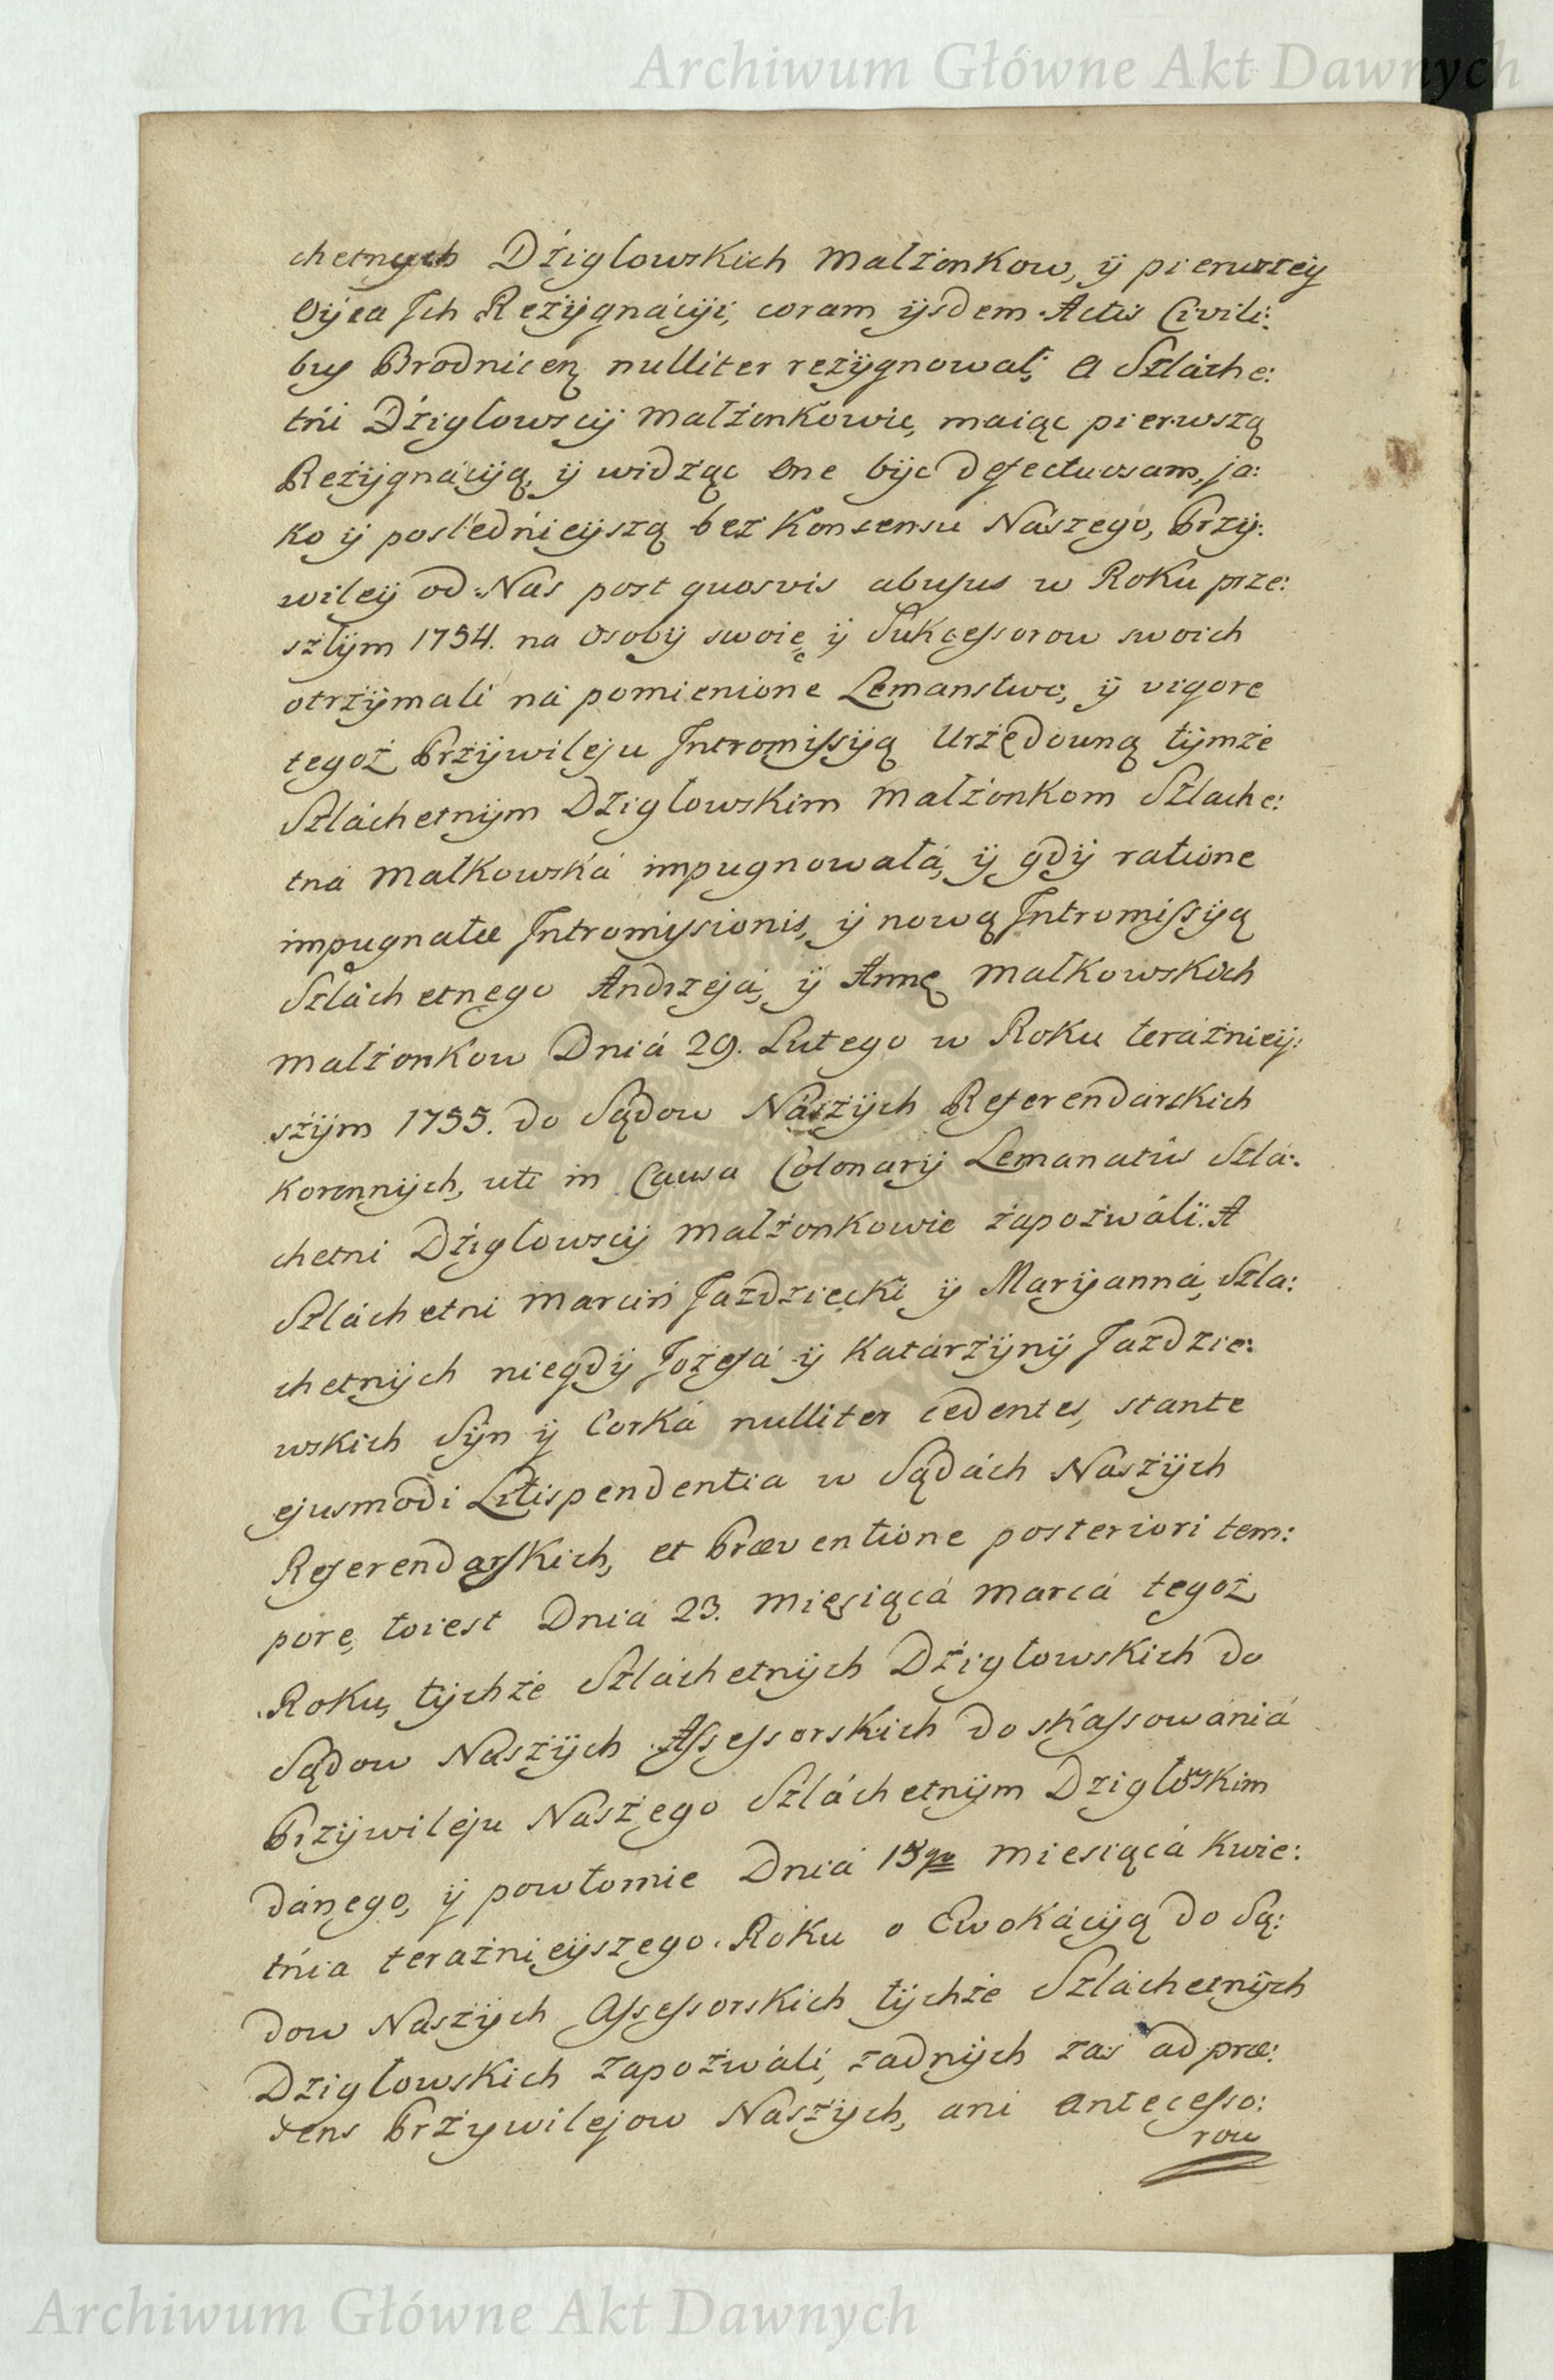 Archiwum Główne Akt Dawnych
chetnych Dźiglowskich Małżonkow, ÿ pierwszeÿ
Oÿca Jch Reżÿgnácÿi, coram ÿsdem Actis Civili:
bus Brodnicen nulliter reżÿgnował; A Szláche:
tńi Dźiglowscÿ Małżonkowie, maiąc pierwszą
Reżÿgnácÿą, ÿ widżąc One bÿc defectuosam, ja:
ko ÿ posledńieÿszą bez Konsensu Nászego, Przÿ:
wileÿ od Nás post quosvis abusus w Roku prze:
szłÿm 1754. na Osobÿ swoię ÿ Sukcessorow swoich
otrzÿmali ná pomienione Lemanstwo, ÿ vigore
tegoż Przÿwileju Jntromissÿą Urzędowną tÿmże
Szláchetnÿm Dziglowskim Małżonkom Szlache:
tná Małkowská impugnowałá, ÿ gdÿ ratione
impugnatæ Jntromissionis, ÿ nową Jntromissÿą
Szláchetnego Andrzejá, ÿ Annę Małkowskich
Małżonkow Dniá 29. Lutego w Roku teráżnieÿ:
szÿm 1755. do Sądow Nászÿch Referendarskich
Koronnÿch, uti in Causa Colonarÿ Lemanatûs Szlá:
chetni Dźiglowscÿ Małżonkowie zapozwáli. A
Szláchetni Marcin Jazdziecki ÿ Marÿanná, Szla:
chetnÿch niegdÿ Jozefá ÿ Katárzÿnÿ Jazdzie:
wskich Sÿn ÿ Corká nulliter cedentes, stante
ejusmodi Litispendentia w Sądách Nászÿch
Referendarskich, et Præventione posteriori tem:
pore, toiest Dniá 23. Miesiącá Marcá tegoż
Roku, tÿchże Szláchetnÿch Dźigłowskich do
Sądow Nászÿch Assessorskich do skassowániá
Przÿwileju Nászego Szláchetnÿm Dzigłoskim
dánego, ÿ powtornie Dniá 15go Miesiącá Kwie:
tńia terażnieÿszego Roku o Ewokácÿą do Są:
dow Nászÿch Assessorskich tÿchże Szláchetnÿch
Dzigłowskich zapozwáli, żadnÿch zaś ad præ:
sens Przywilejow Nászÿch, ani Antecesso:
row
Archiwum Główne Akt Dawnych